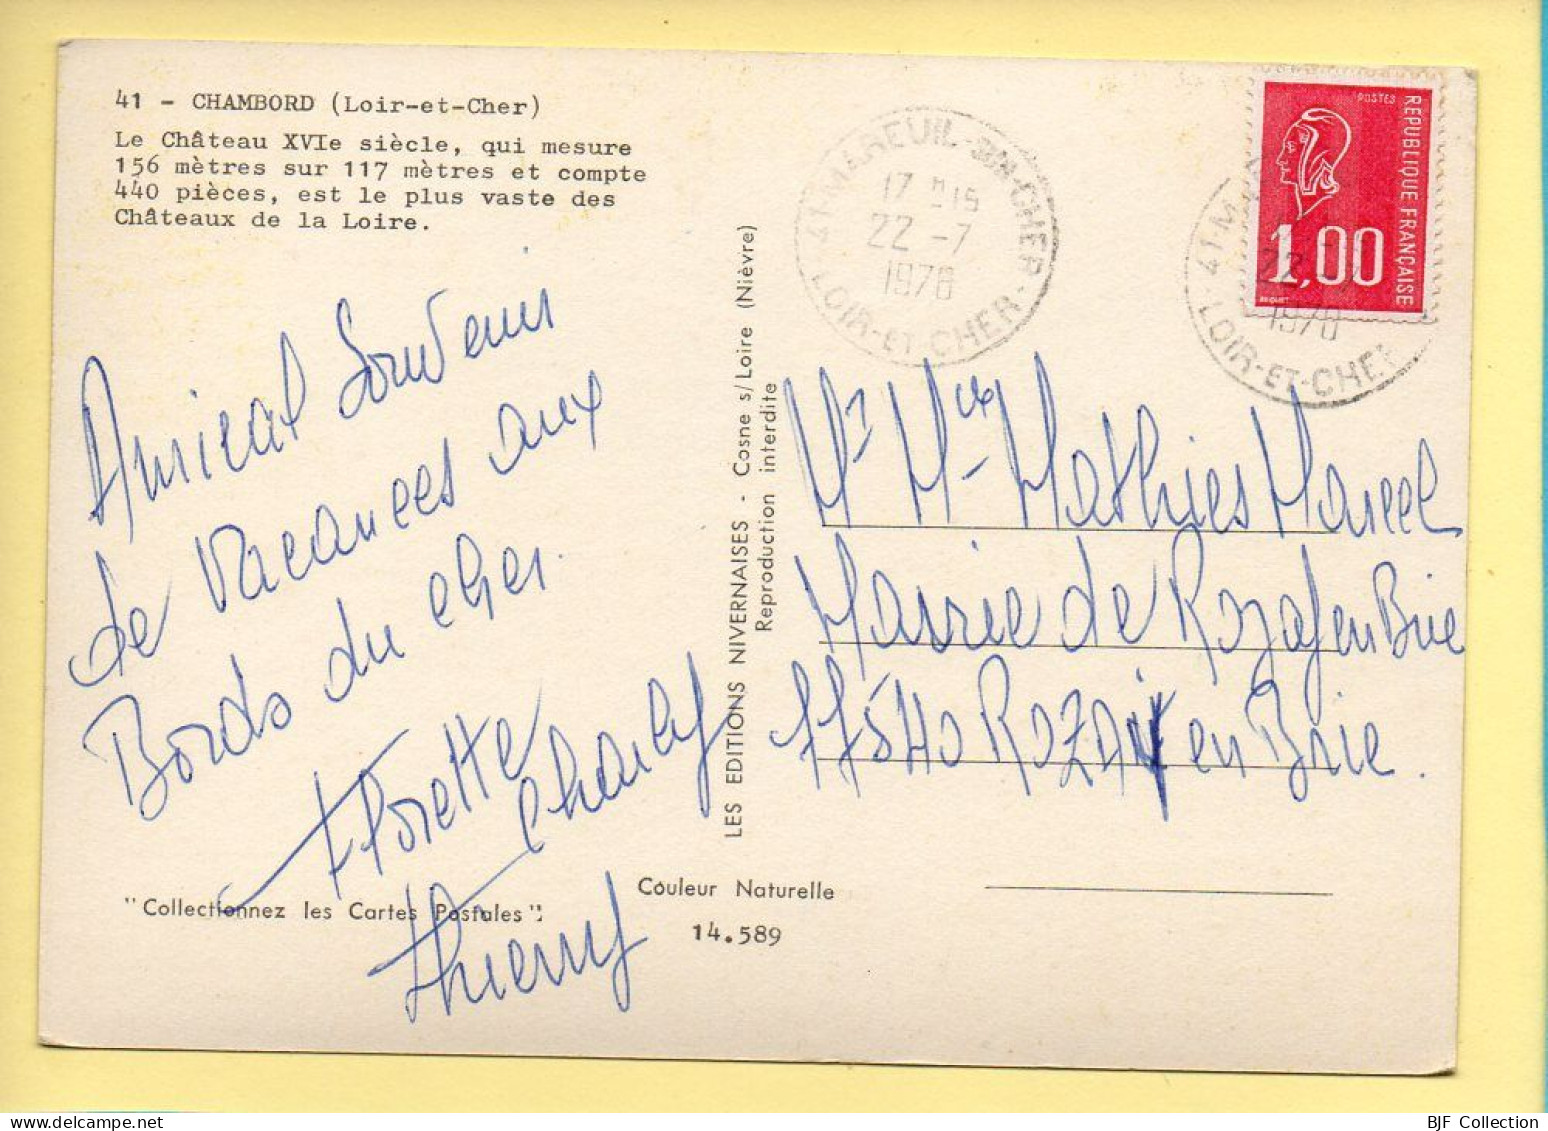 41 - CHAMBORD (Loir-et-Cher)
Le Château XVIe siècle, qui mesure
156 mètres sur 117 mètres et compte
440 pièces, est le plus vaste des
Châteaux de la Loire.
Amical Souvenir
de Vacances aux
Bords du Cher.
Florette
Charly
Thierry
"Collectionnez les Cartes Postales":
Couleur Naturelle
14.589
LES EDITIONS NIVERNAISES - Cosne s/Loire (Nièvre)
Reproduction interdite
41 MAREUIL-SUR-CHER
17 H 15
22 -7
1976
LOIR-ET-CHER
POSTES
REPUBLIQUE FRANÇAISE
1,00
BEQUET
41 M
22 -7
1976
LOIR-ET-CHER
Mr Mme Mathies Marcel
Mairie de Rozay en Brie
77540 ROZAY en Brie.
BJF Collection